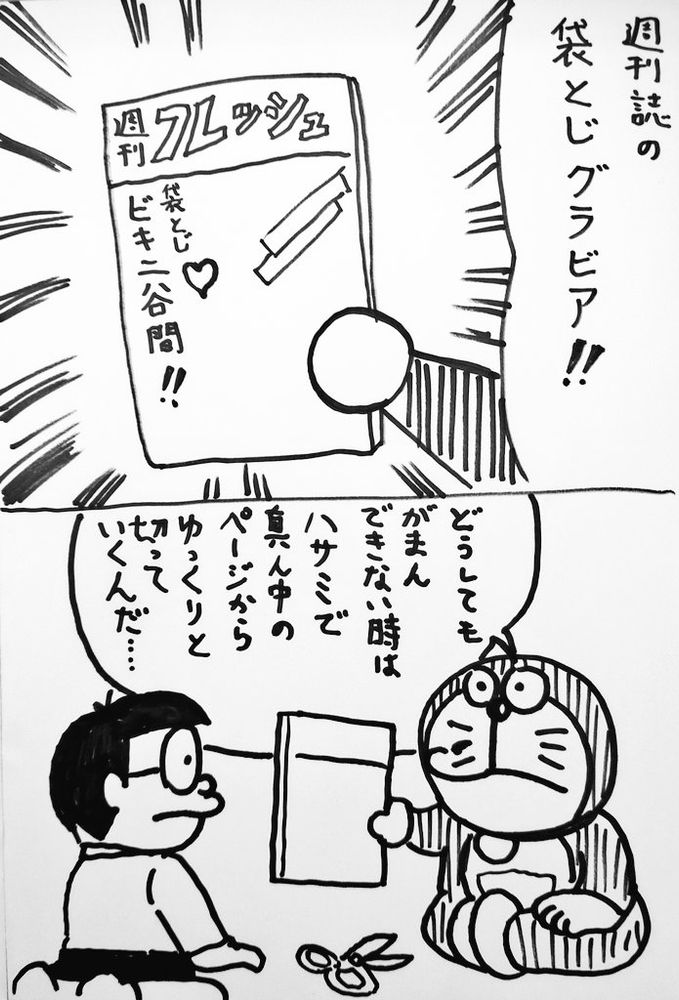 週刊誌の
袋とじグラビア!!
週刊
フレッシュ
袋とじ
ビキニ谷間!!
どうしても
がまん
できない時は
ハサミで
真ん中の
ページから
ゆっくりと
切って
いくんだ……